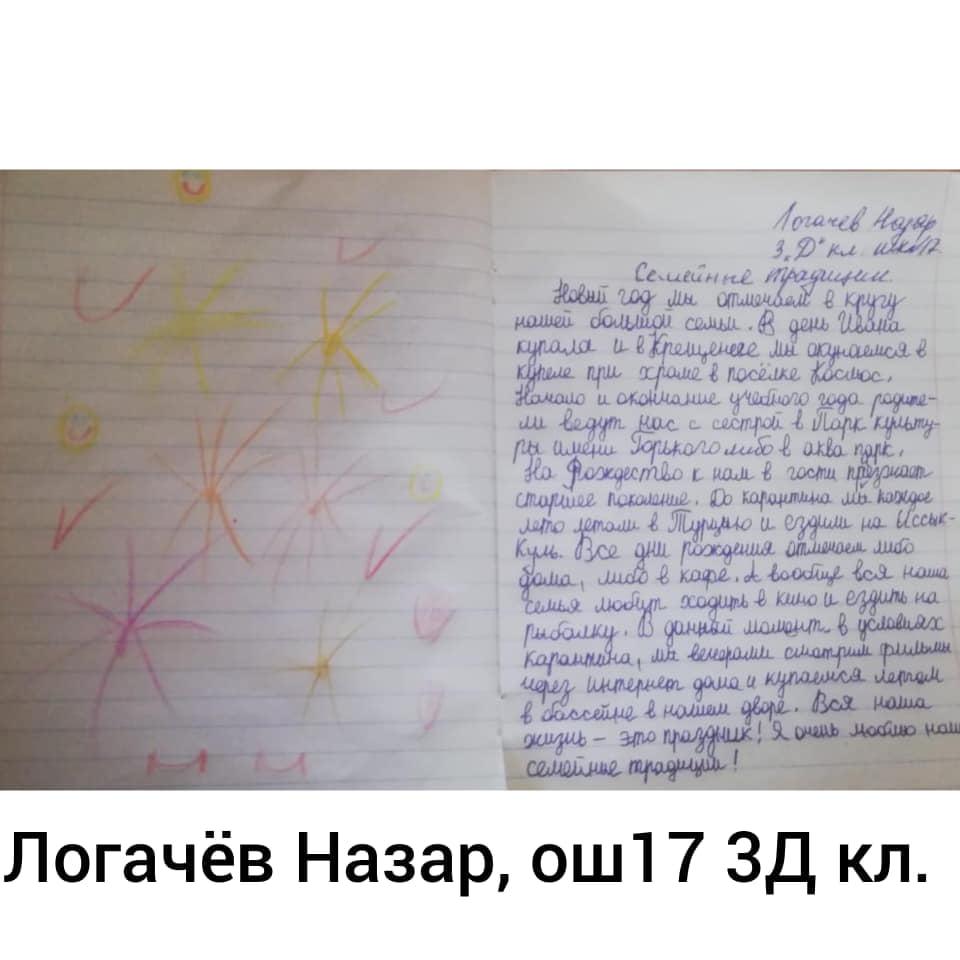 Логачев Назар
3„Д“ кл. шк№17.
Семейные традиции.
Новый год мы отмечаем в кругу
нашей большой семьи. В день Ивана
купала и в Крещенеге мы окунаемся в
купеле при храме в посёлке Космос.
Начало и окончание учебного года родите-
ли ведут нас с сестрой в Парк культу-
ры имени Горького либо в аква парк.
На Рождество к нам в гости приезжает
старшее поколение. До карантина мы каждое
лето летали в Турцию и ездили на Иссык-
Куль. Все дни рождения отмечаем либо
дома, либо в кафе. А вообще вся наша
семья любит ходить в кино и ездить на
рыбалку. В данный момент в условиях
карантина, мы вечерами смотрим фильмы
через интернет дома и купаемся летом
в бассейне в нашем дворе. Вся наша
жизнь – это праздник! Я очень люблю наш
семейные традиции!
Логачёв Назар, ош17 3Д кл.